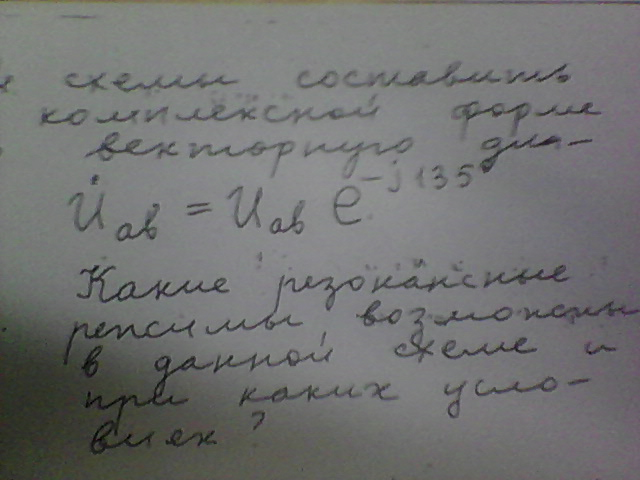 схемы составить
комплексной форме
векторную диа-
U̇ав = Uав e^-j135°
Какие резонансные
режимы возможны
в данной схеме и
при каких усло-
виях?